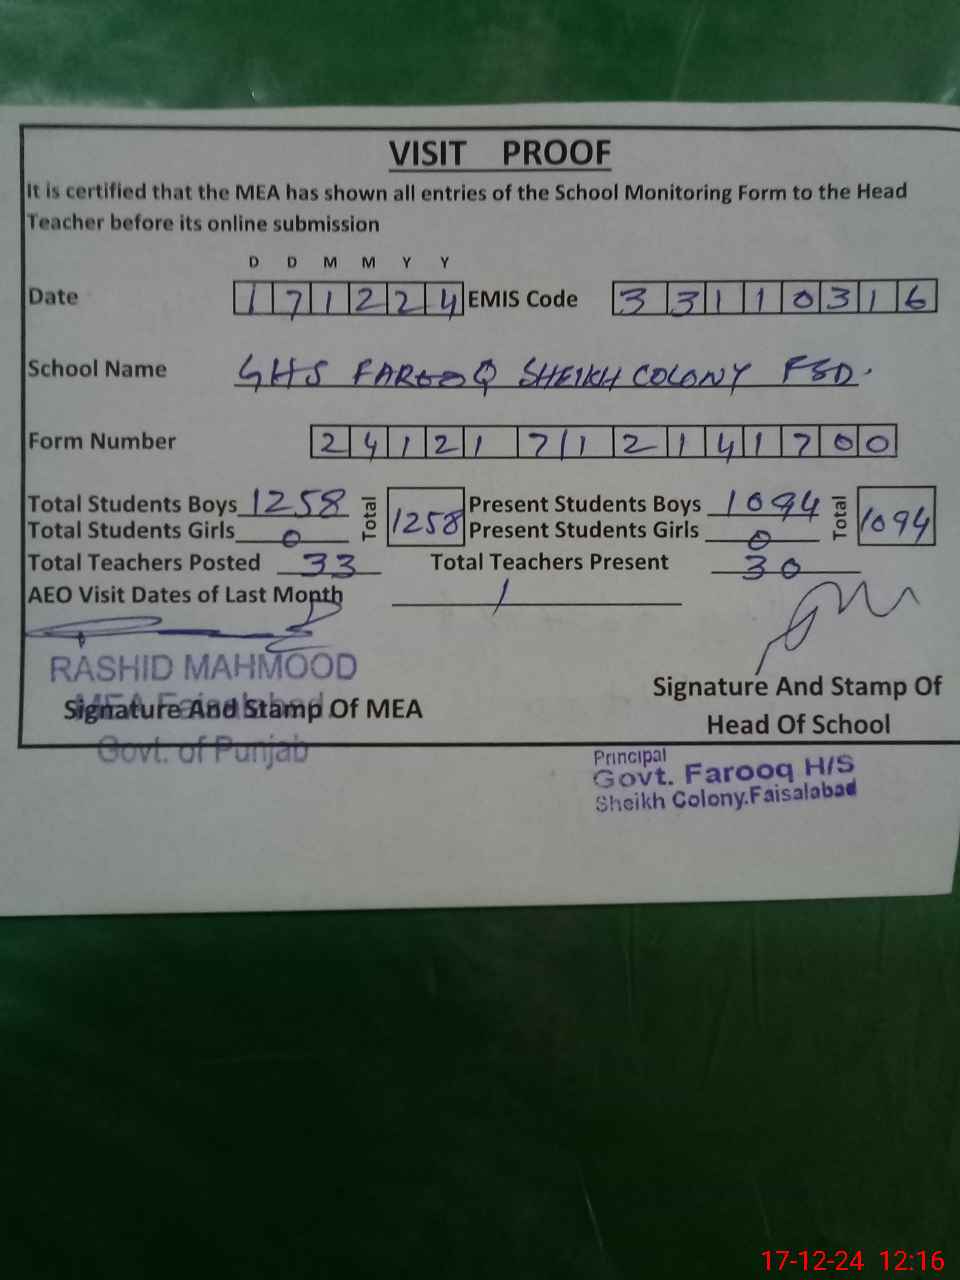 VISIT PROOF
It is certified that the MEA has shown all entries of the School Monitoring Form to the Head
Teacher before its online submission
D D M M Y Y
Date 1 7 1 2 2 4 EMIS Code 3 3 1 1 0 3 1 6
School Name GHS FAROOQ SHEIKH COLONY FSD.
Form Number 2 4 1 2 1 7 1 1 2 1 4 1 7 0 0
Total Students Boys 1258 Total 1258 Present Students Boys 1094 Total 1094
Total Students Girls 0 Present Students Girls 0
Total Teachers Posted 33 Total Teachers Present 30
AEO Visit Dates of Last Month /
RASHID MAHMOOD
MEA Faisalabad
Signature And Stamp Of MEA
Govt. of Punjab
Signature And Stamp Of
Head Of School
Principal
Govt. Farooq H/S
Sheikh Colony.Faisalabad
17-12-24 12:16